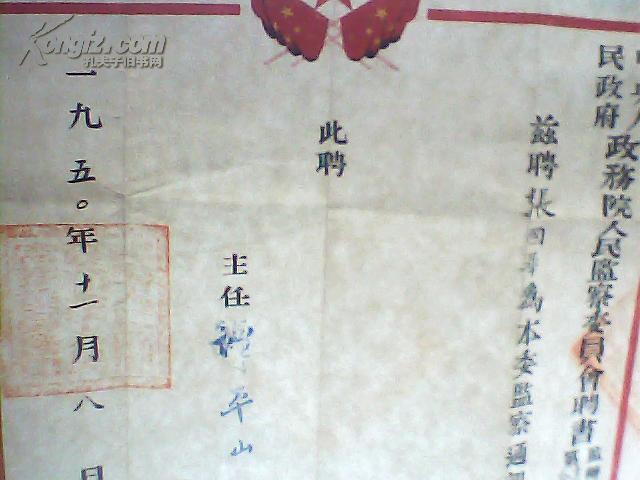 民政府政務院人民監察委員會聘書
茲聘張四
為本委監察通
此聘
主任
平山
一九五〇年十一月八日
Kongfz.com
孔夫子旧书网